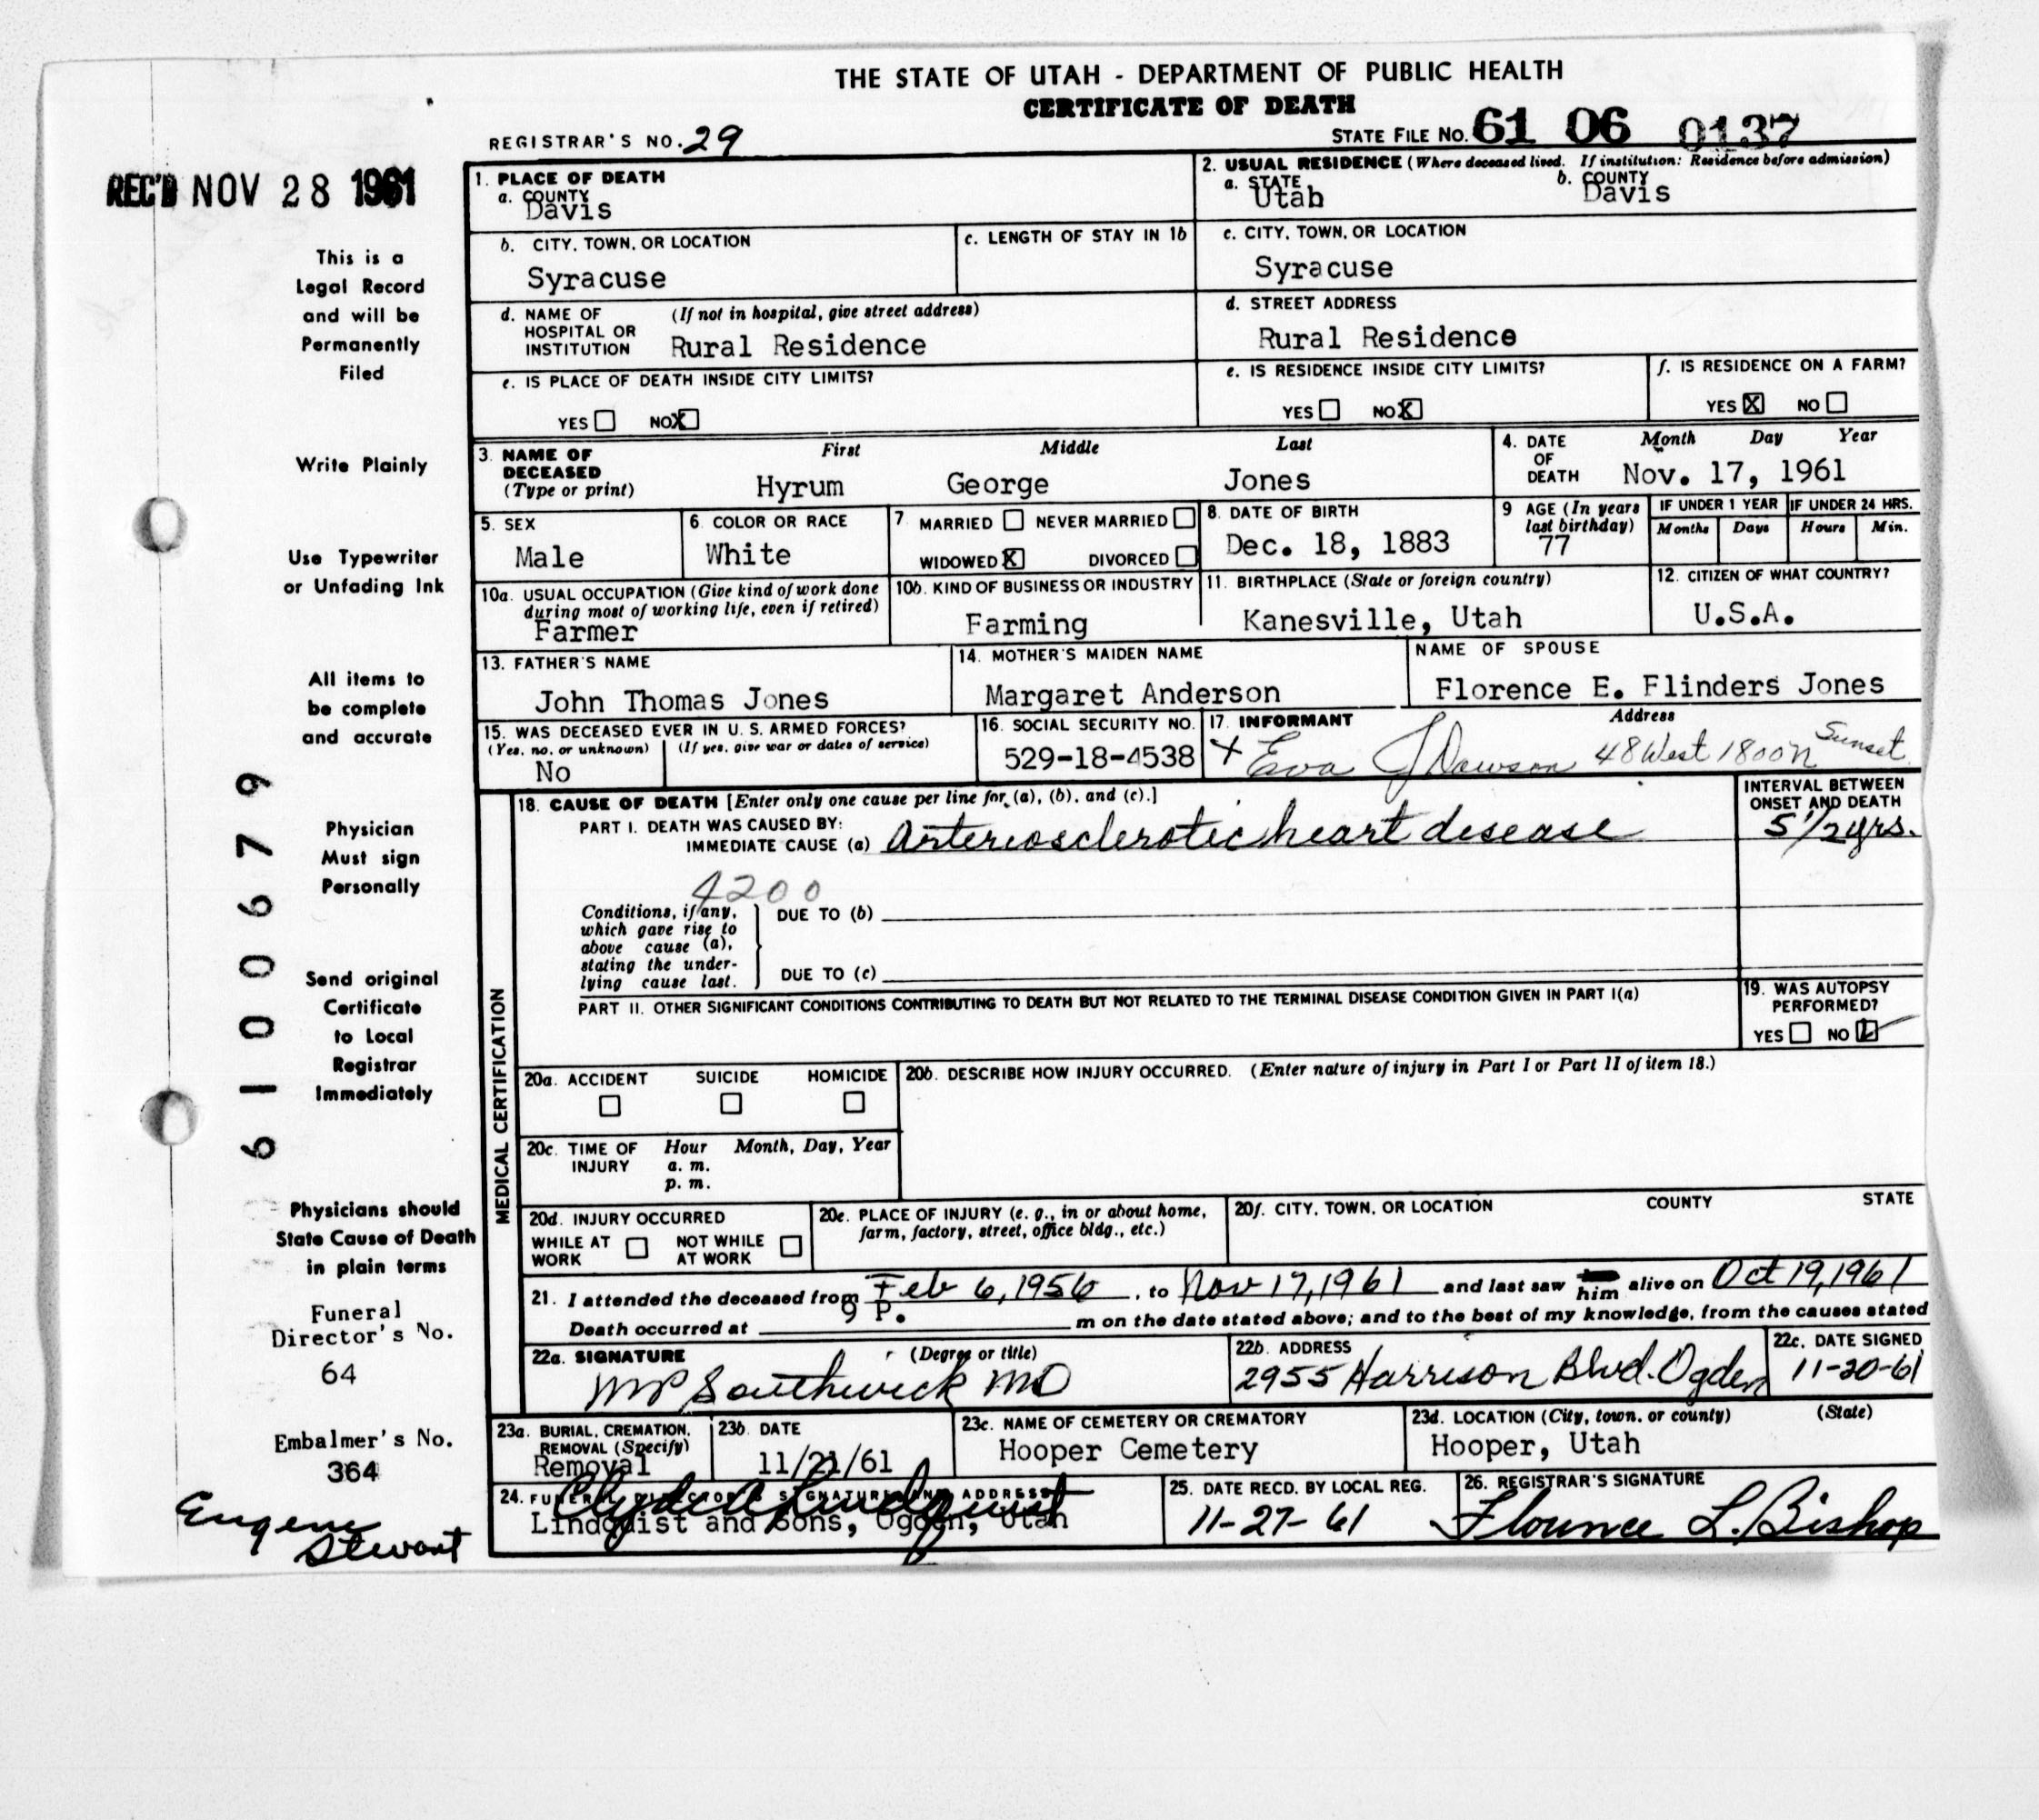 THE STATE OF UTAH - DEPARTMENT OF PUBLIC HEALTH
CERTIFICATE OF DEATH
REGISTRAR'S NO. 29
STATE FILE NO. 61 06 0137
REC'D NOV 28 1961
This is a
Legal Record
and will be
Permanently
Filed
Write Plainly
Use Typewriter
or Unfading Ink
All items to
be complete
and accurate
Physician
Must sign
Personally
Send original
Certificate
to Local
Registrar
Immediately
Physicians should
State Cause of Death
in plain terms
Funeral
Director's No.
64
Embalmer's No.
364
Eugene
Stewart
6100679
1. PLACE OF DEATH
a. COUNTY
Davis
2. USUAL RESIDENCE (Where deceased lived. If institution: Residence before admission)
a. STATE b. COUNTY
Utah Davis
b. CITY, TOWN, OR LOCATION
Syracuse
c. LENGTH OF STAY IN 1b
c. CITY, TOWN, OR LOCATION
Syracuse
d. NAME OF (If not in hospital, give street address)
HOSPITAL OR
INSTITUTION Rural Residence
d. STREET ADDRESS
Rural Residence
e. IS PLACE OF DEATH INSIDE CITY LIMITS?
YES NO X
e. IS RESIDENCE INSIDE CITY LIMITS?
YES NO X
f. IS RESIDENCE ON A FARM?
YES X NO
3. NAME OF First Middle Last
DECEASED
(Type or print) Hyrum George Jones
4. DATE Month Day Year
OF
DEATH Nov. 17, 1961
5. SEX
Male
6. COLOR OR RACE
White
7. MARRIED NEVER MARRIED
WIDOWED X DIVORCED
8. DATE OF BIRTH
Dec. 18, 1883
9 AGE (In years
last birthday)
77
IF UNDER 1 YEAR IF UNDER 24 HRS.
Months Days Hours Min.
10a. USUAL OCCUPATION (Give kind of work done
during most of working life, even if retired)
Farmer
10b. KIND OF BUSINESS OR INDUSTRY
Farming
11. BIRTHPLACE (State or foreign country)
Kanesville, Utah
12. CITIZEN OF WHAT COUNTRY?
U.S.A.
13. FATHER'S NAME
John Thomas Jones
14. MOTHER'S MAIDEN NAME
Margaret Anderson
NAME OF SPOUSE
Florence E. Flinders Jones
15. WAS DECEASED EVER IN U. S. ARMED FORCES?
(Yes, no, or unknown) (If yes, give war or dates of service)
No
16. SOCIAL SECURITY NO.
529-18-4538
17. INFORMANT Address
x Eva J Dawson 48 West 1800 N Sunset
MEDICAL CERTIFICATION
18. CAUSE OF DEATH [Enter only one cause per line for (a), (b), and (c).]
PART I. DEATH WAS CAUSED BY:
IMMEDIATE CAUSE (a) Arteriosclerotic heart disease
INTERVAL BETWEEN
ONSET AND DEATH
5 1/2 yrs.
4200
Conditions, if any,
which gave rise to
above cause (a),
stating the under-
lying cause last.
DUE TO (b)
DUE TO (c)
PART II. OTHER SIGNIFICANT CONDITIONS CONTRIBUTING TO DEATH BUT NOT RELATED TO THE TERMINAL DISEASE CONDITION GIVEN IN PART I(a)
19. WAS AUTOPSY
PERFORMED?
YES NO
20a. ACCIDENT SUICIDE HOMICIDE
20b. DESCRIBE HOW INJURY OCCURRED. (Enter nature of injury in Part I or Part II of item 18.)
20c. TIME OF Hour Month, Day, Year
INJURY a. m.
p. m.
20d. INJURY OCCURRED
WHILE AT NOT WHILE
WORK AT WORK
20e. PLACE OF INJURY (e. g., in or about home,
farm, factory, street, office bldg., etc.)
20f. CITY, TOWN, OR LOCATION COUNTY STATE
21. I attended the deceased from Feb 6, 1956, to Nov 17, 1961 and last saw him alive on Oct 19, 1961
Death occurred at 9 P. m on the date stated above; and to the best of my knowledge, from the causes stated
22a. SIGNATURE (Degree or title)
MP Southwick MD
22b. ADDRESS
2955 Harrison Blvd. Ogden
22c. DATE SIGNED
11-20-61
23a. BURIAL, CREMATION,
REMOVAL (Specify)
Removal
23b. DATE
11/21/61
23c. NAME OF CEMETERY OR CREMATORY
Hooper Cemetery
23d. LOCATION (City, town, or county) (State)
Hooper, Utah
24. FUNERAL DIRECTOR'S SIGNATURE AND ADDRESS
Lindquist and Sons, Ogden, Utah
25. DATE RECD. BY LOCAL REG.
11-27-61
26. REGISTRAR'S SIGNATURE
Flounce L. Bishop